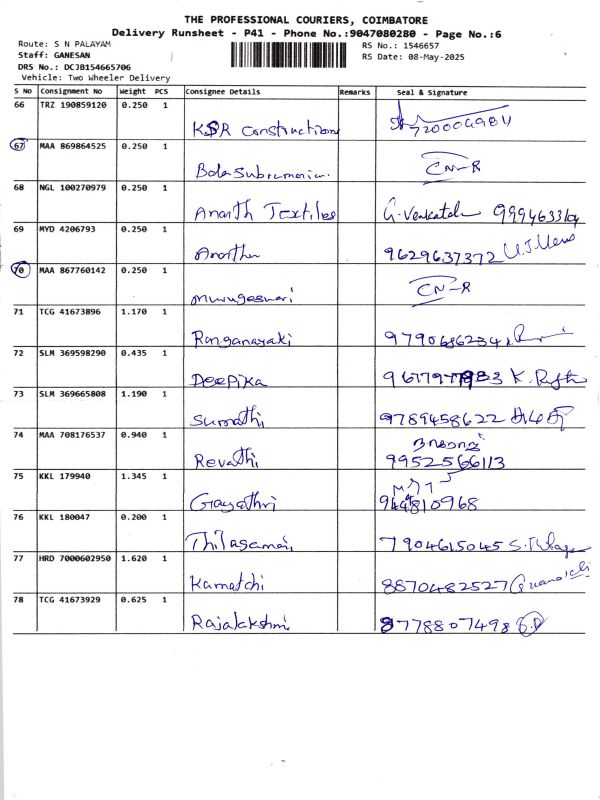 THE PROFESSIONAL COURIERS, COIMBATORE
Delivery Runsheet - P41 - Phone No.:9047080280 - Page No.:6
Route: S N PALAYAM
RS No.: 1546657
Staff: GANESAN
RS Date: 08-May-2025
DRS No.: DCJB154665706
Vehicle: Two Wheeler Delivery
S No Consignment No Weight PCS Consignee Details Remarks Seal & Signature
66 TRZ 190859120 0.250 1
KSR Constructions
67 MAA 869864525 0.250 1
CN-R
68 NGL 100270979 0.250 1
Ananth Textiles G. Venkatesh
69 MYD 4206793 0.250 1
9629637372
70 MAA 867760142 0.250 1
Murugeswari CN-R
71 TCG 41673896 1.170 1
Ranganayaki 9790686234
72 SLM 369598290 0.435 1
Deepika
73 SLM 369665808 1.190 1
Sumathi 9789458622
74 MAA 708176537 0.940 1
Revathi 9952566113
75 KKL 179940 1.345 1
Gayathri
76 KKL 180047 0.200 1
Thilagamani 7904615045
77 HRD 7000602950 1.620 1
Kamatchi 8870482527
78 TCG 41673929 0.625 1
Rajalakshmi 8778807498